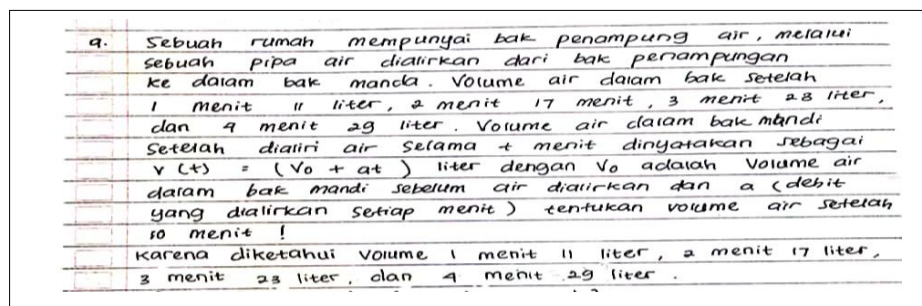 9. Sebuah rumah mempunyai bak penampung air, melalui
sebuah pipa air dialirkan dari bak penampungan
ke dalam bak manda. Volume air dalam bak setelah
1 menit 11 liter, 2 menit 17 menit, 3 menit 23 liter,
dan 4 menit 29 liter. Volume air dalam bak mandi
Setelah dialiri air selama t menit dinyatakan sebagai
V (t) = (Vo + at) liter dengan Vo adalah Volume air
dalam bak mandi sebelum air dialirkan dan a (debit
yang dialirkan setiap menit) tentukan volume air setelah
10 menit !
Karena diketahui volume 1 menit 11 liter, 2 menit 17 liter,
3 menit 23 liter, dan 4 menit 29 liter.